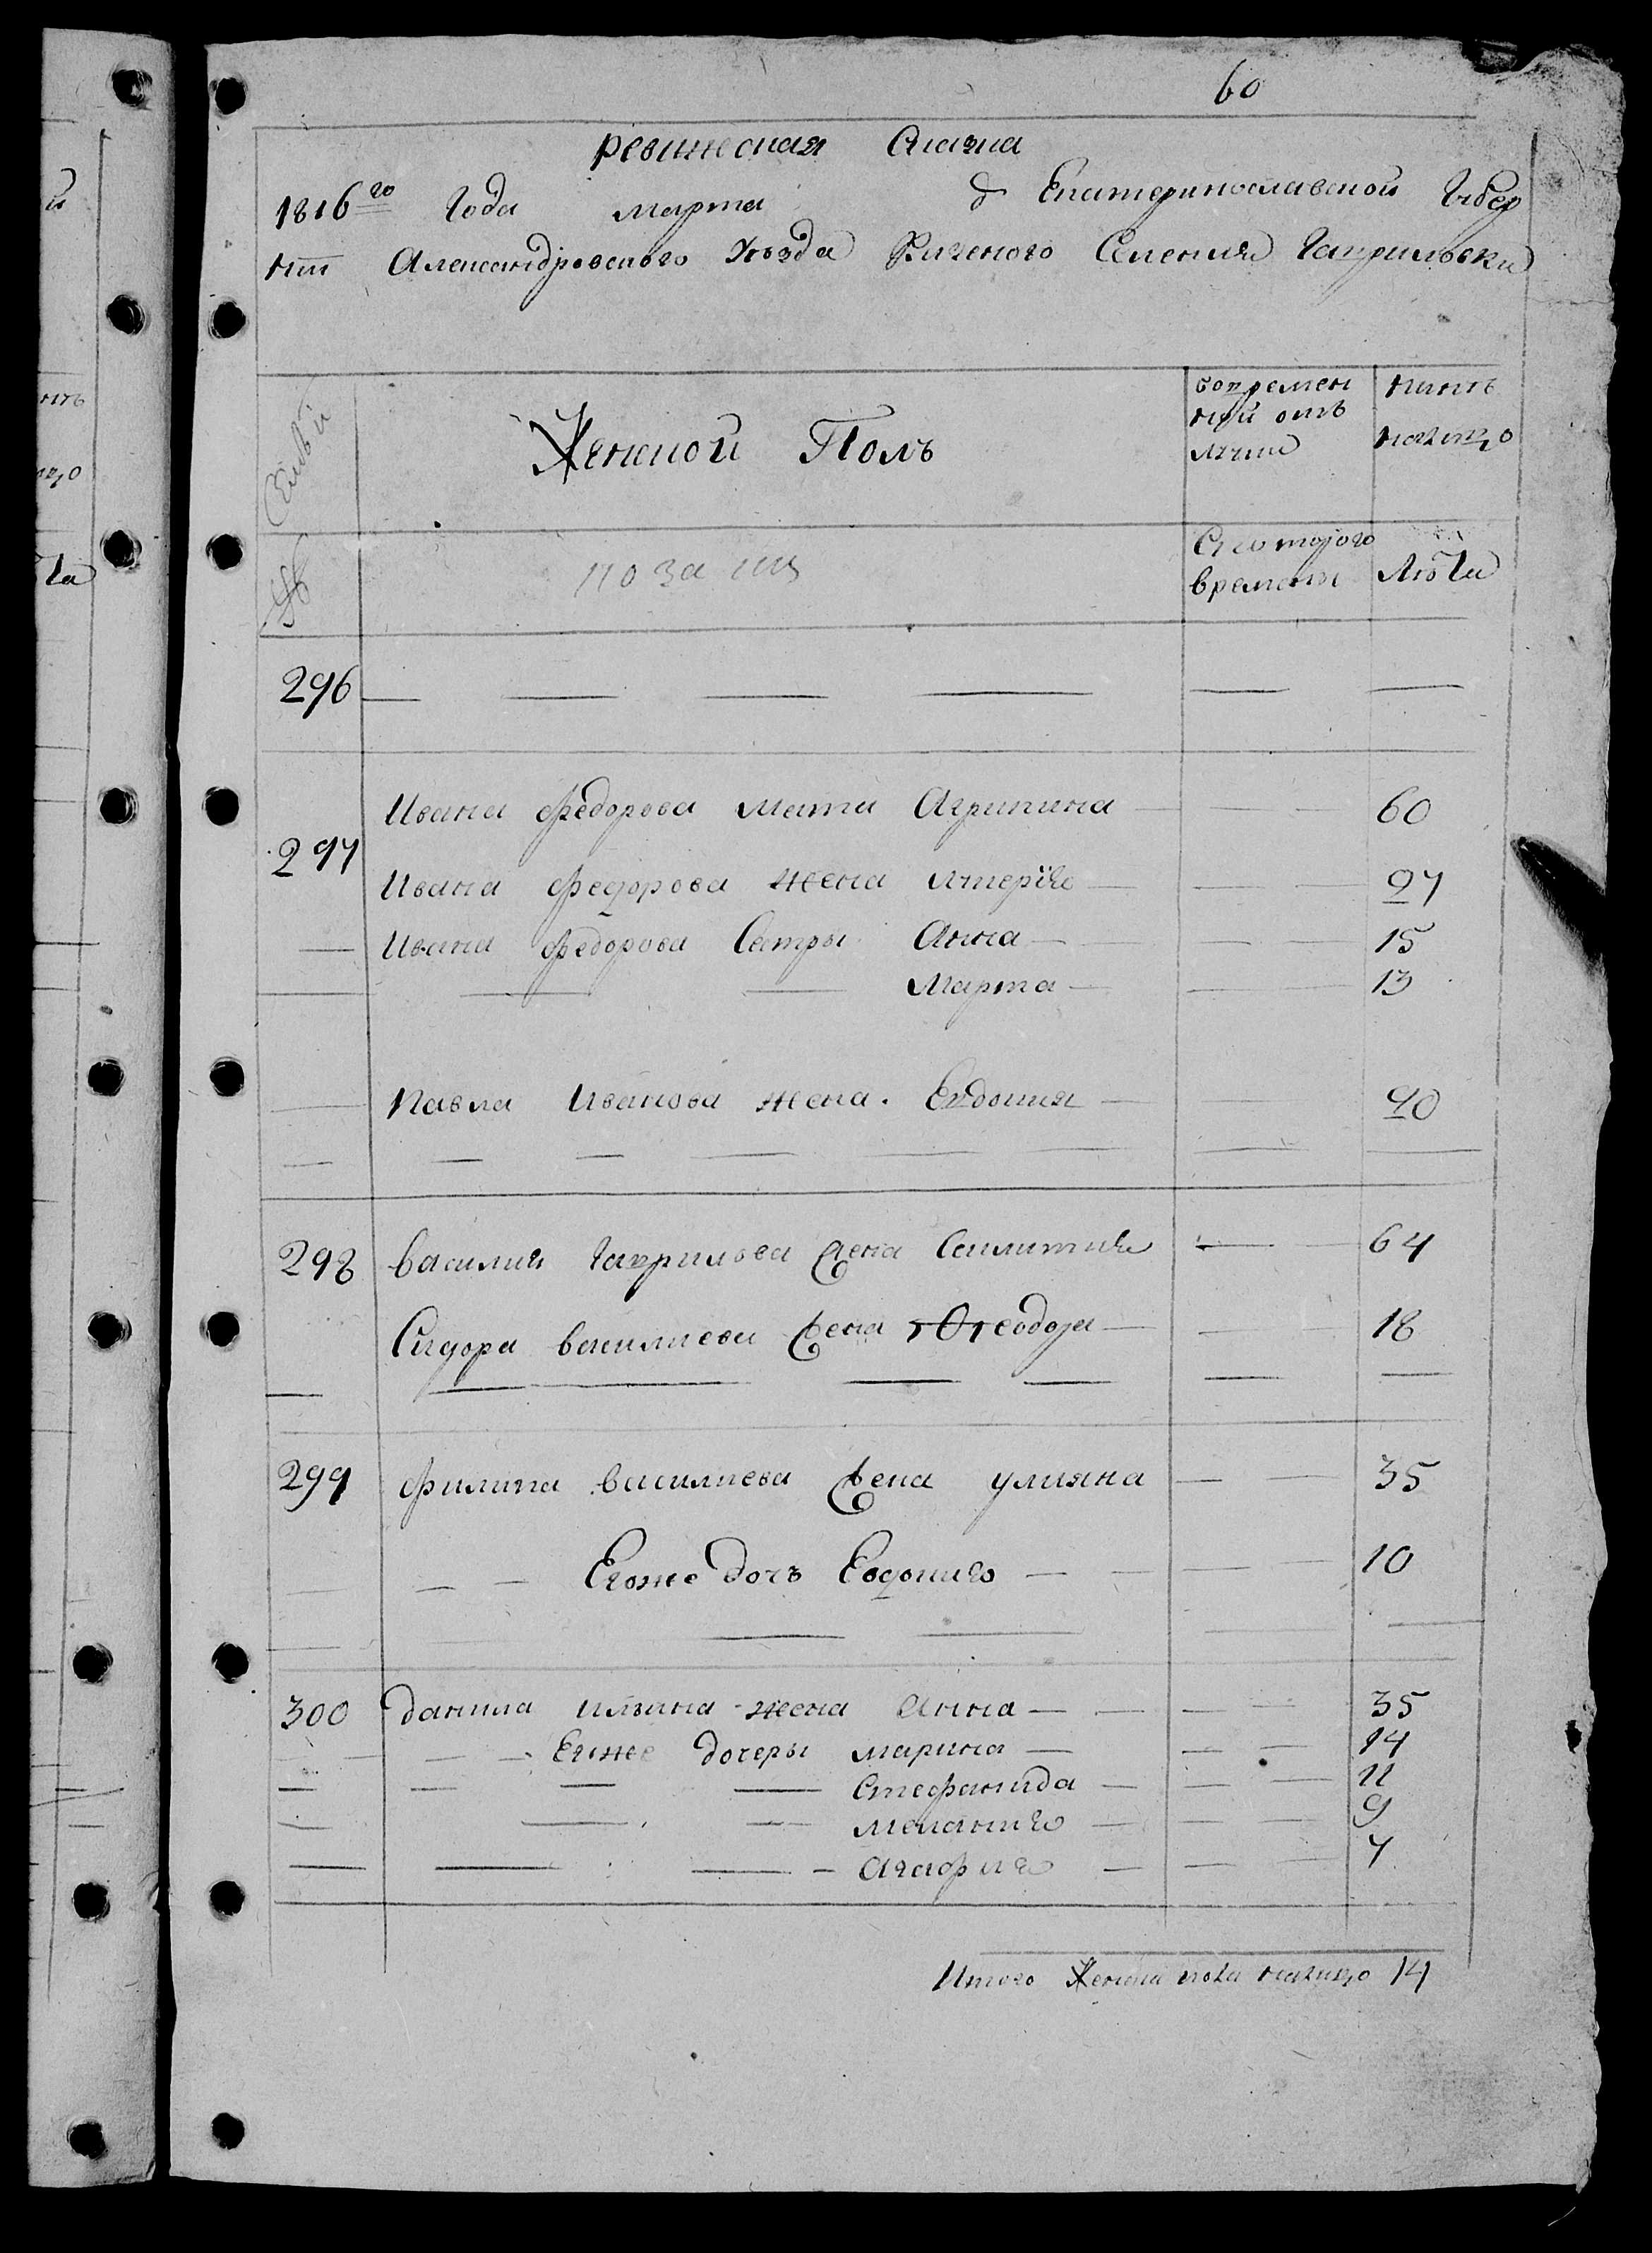 60
ревижская Сказка
1816го Года марта д Екатеринославской Губер
нии Александровского Уезда Селения Гаврильовки
Семьи
Женской Полъ
вовремен
ной отъ
лучке
ныне
налицо
№
Скоторого
времени
Лета
296
297
Ивана Федорова мати Агрипина 60
Ивана Федорова жена 27
Ивана Федорова Сестры Анна 15
Марта 13
Павла Иванова жена Евдокия 20
298 Василия Гаврилова жена 64
Сидора василиева жена Феодора 18
299 Филипа василиева жена улияна 35
Егоже дочъ Евдокия 10
300 данила илъина жена Анна 35
Егоже дочеры марина 14
Стефанида 11
мелания 9
Агафия 7
Итого Женска пола налицо 14